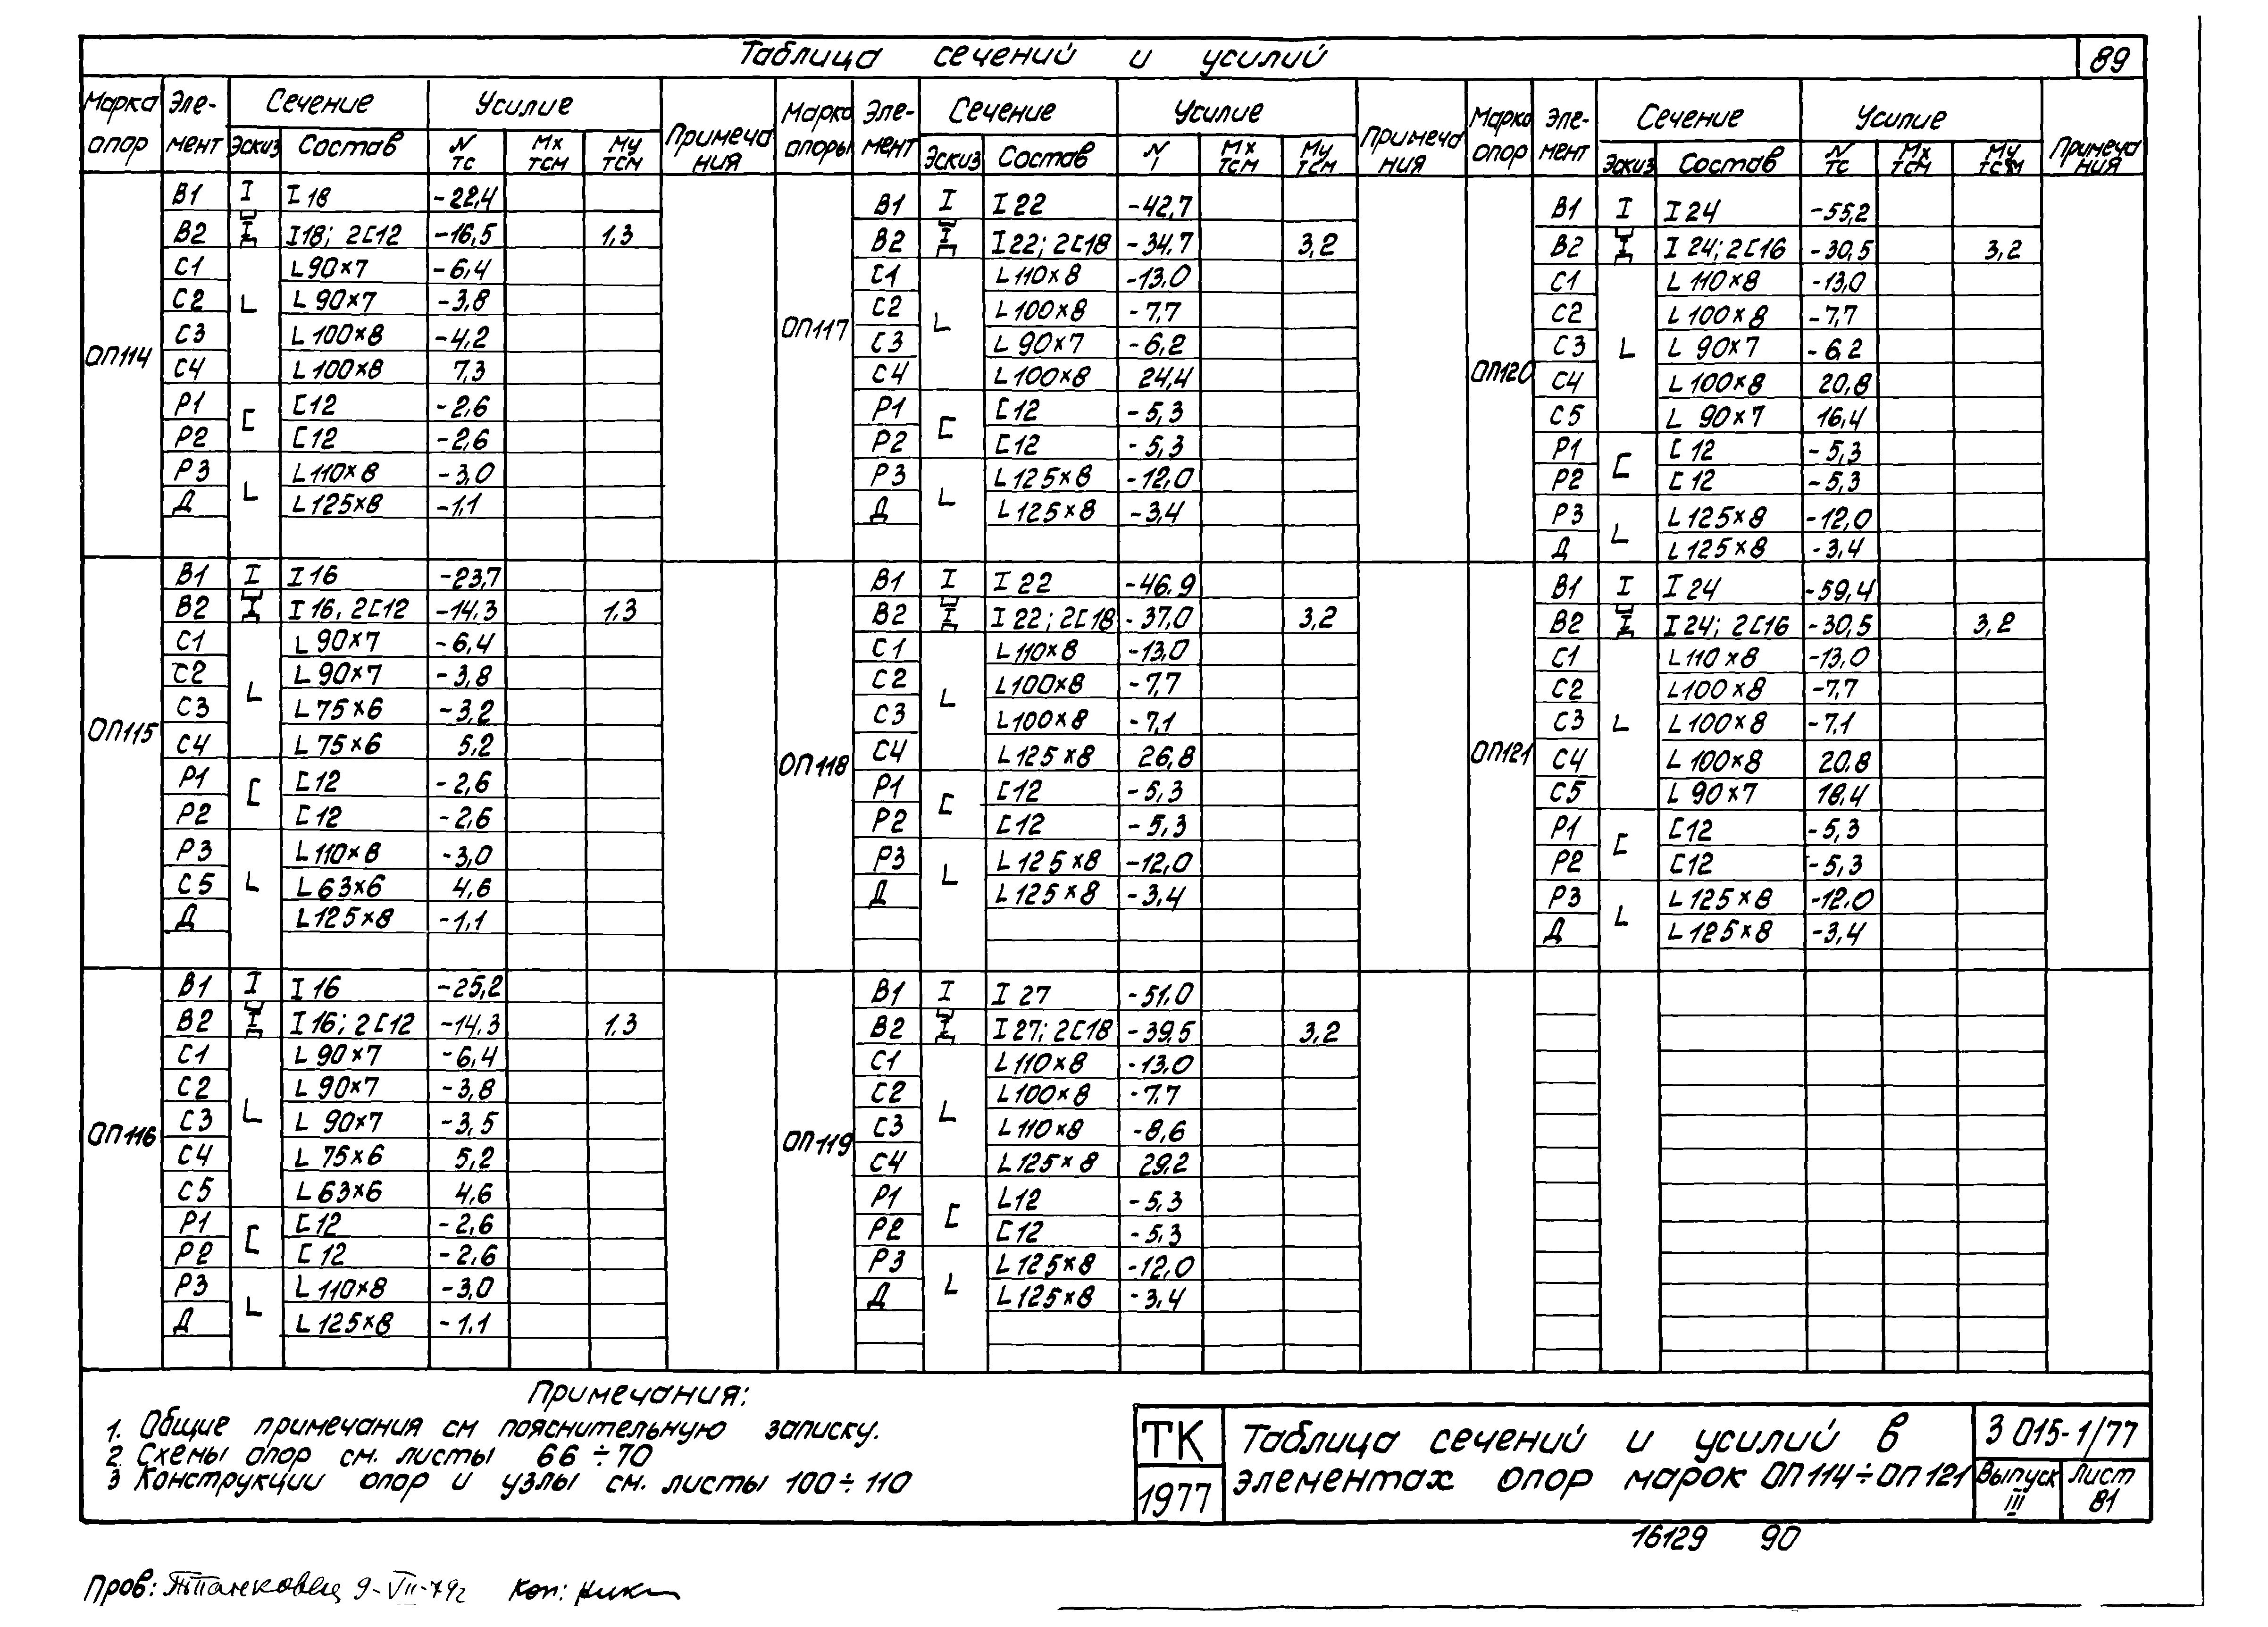 Таблица сечений и усилий
89
Марка опор Эле-мент Сечение Усилие Примечания
Эскиз Состав N тс Mx тсм My тсм
ОП114
В1 I I 18 -22,4
В2 I18; 2[12 -16,5 1,3
С1 L 90×7 -6,4
С2 L 90×7 -3,8
С3 L 100×8 -4,2
С4 L 100×8 7,3
Р1 [12 -2,6
Р2 [12 -2,6
Р3 L110×8 -3,0
Д L125×8 -1,1
ОП115
В1 I I 16 -23,7
В2 I 16, 2[12 -14,3 1,3
С1 L 90×7 -6,4
С2 L 90×7 -3,8
С3 L 75×6 -3,2
С4 L 75×6 5,2
Р1 [12 -2,6
Р2 [12 -2,6
Р3 L110×8 -3,0
С5 L 63×6 4,6
Д L125×8 -1,1
ОП116
В1 I I 16 -25,2
В2 I 16; 2[12 -14,3 1,3
С1 L 90×7 -6,4
С2 L 90×7 -3,8
С3 L 90×7 -3,5
С4 L 75×6 5,2
С5 L 63×6 4,6
Р1 [12 -2,6
Р2 [12 -2,6
Р3 L 110×8 -3,0
Д L 125×8 -1.1
Марка опоры Эле-мент Сечение Усилие Примечания
Эскиз Состав N Mx тсм My тсм
ОП117
В1 I I 22 -42,7
В2 I 22; 2[18 -34,7 3,2
С1 L 110×8 -13,0
С2 L 100×8 -7,7
С3 L 90×7 -6,2
С4 L 100×8 24,4
Р1 [12 -5,3
Р2 [12 -5,3
Р3 L 125×8 -12,0
Д L 125×8 -3,4
ОП118
В1 I I 22 -46,9
В2 I 22; 2[18 -37,0 3,2
С1 L110×8 -13,0
С2 L100×8 -7,7
С3 L100×8 -7,1
С4 L125×8 26,8
Р1 [12 -5,3
Р2 [12 -5,3
Р3 L 125×8 -12,0
Д L 125×8 -3,4
ОП119
В1 I I 27 -51,0
В2 I 27; 2[18 -39,5 3,2
С1 L110×8 -13,0
С2 L100×8 -7,7
С3 L110×8 -8,6
С4 L125×8 29,2
Р1 L12 -5,3
Р2 [12 -5,3
Р3 L125×8 -12,0
Д L125×8 -3,4
Марка опор Эле-мент Сечение Усилие Примечания
Эскиз Состав N тс Mx тсм My тсм
ОП120
В1 I I 24 -55,2
В2 I 24; 2[16 -30,5 3,2
С1 L 110×8 -13,0
С2 L 100×8 -7,7
С3 L 90×7 -6,2
С4 L 100×8 20,8
С5 L 90×7 16,4
Р1 [12 -5,3
Р2 [12 -5,3
Р3 L 125×8 -12,0
Д L 125×8 -3,4
ОП121
В1 I I 24 -59,4
В2 I 24; 2[16 -30,5 3,2
С1 L110×8 -13,0
С2 L100×8 -7,7
С3 L100×8 -7,1
С4 L 100×8 20,8
С5 L 90×7 18,4
Р1 [12 -5,3
Р2 [12 -5,3
Р3 L 125×8 -12,0
Д L 125×8 -3,4
Примечания:
1. Общие примечания см пояснительную записку.
2. Схемы опор см. листы 66÷70
3 Конструкции опор и узлы см. листы 100÷110
ТК
1977
Таблица сечений и усилий в
элементах опор марок ОП114÷ОП121
3 015-1/77
Выпуск III
Лист 81
16129 90
Пров: 9-VII-79г Коп: